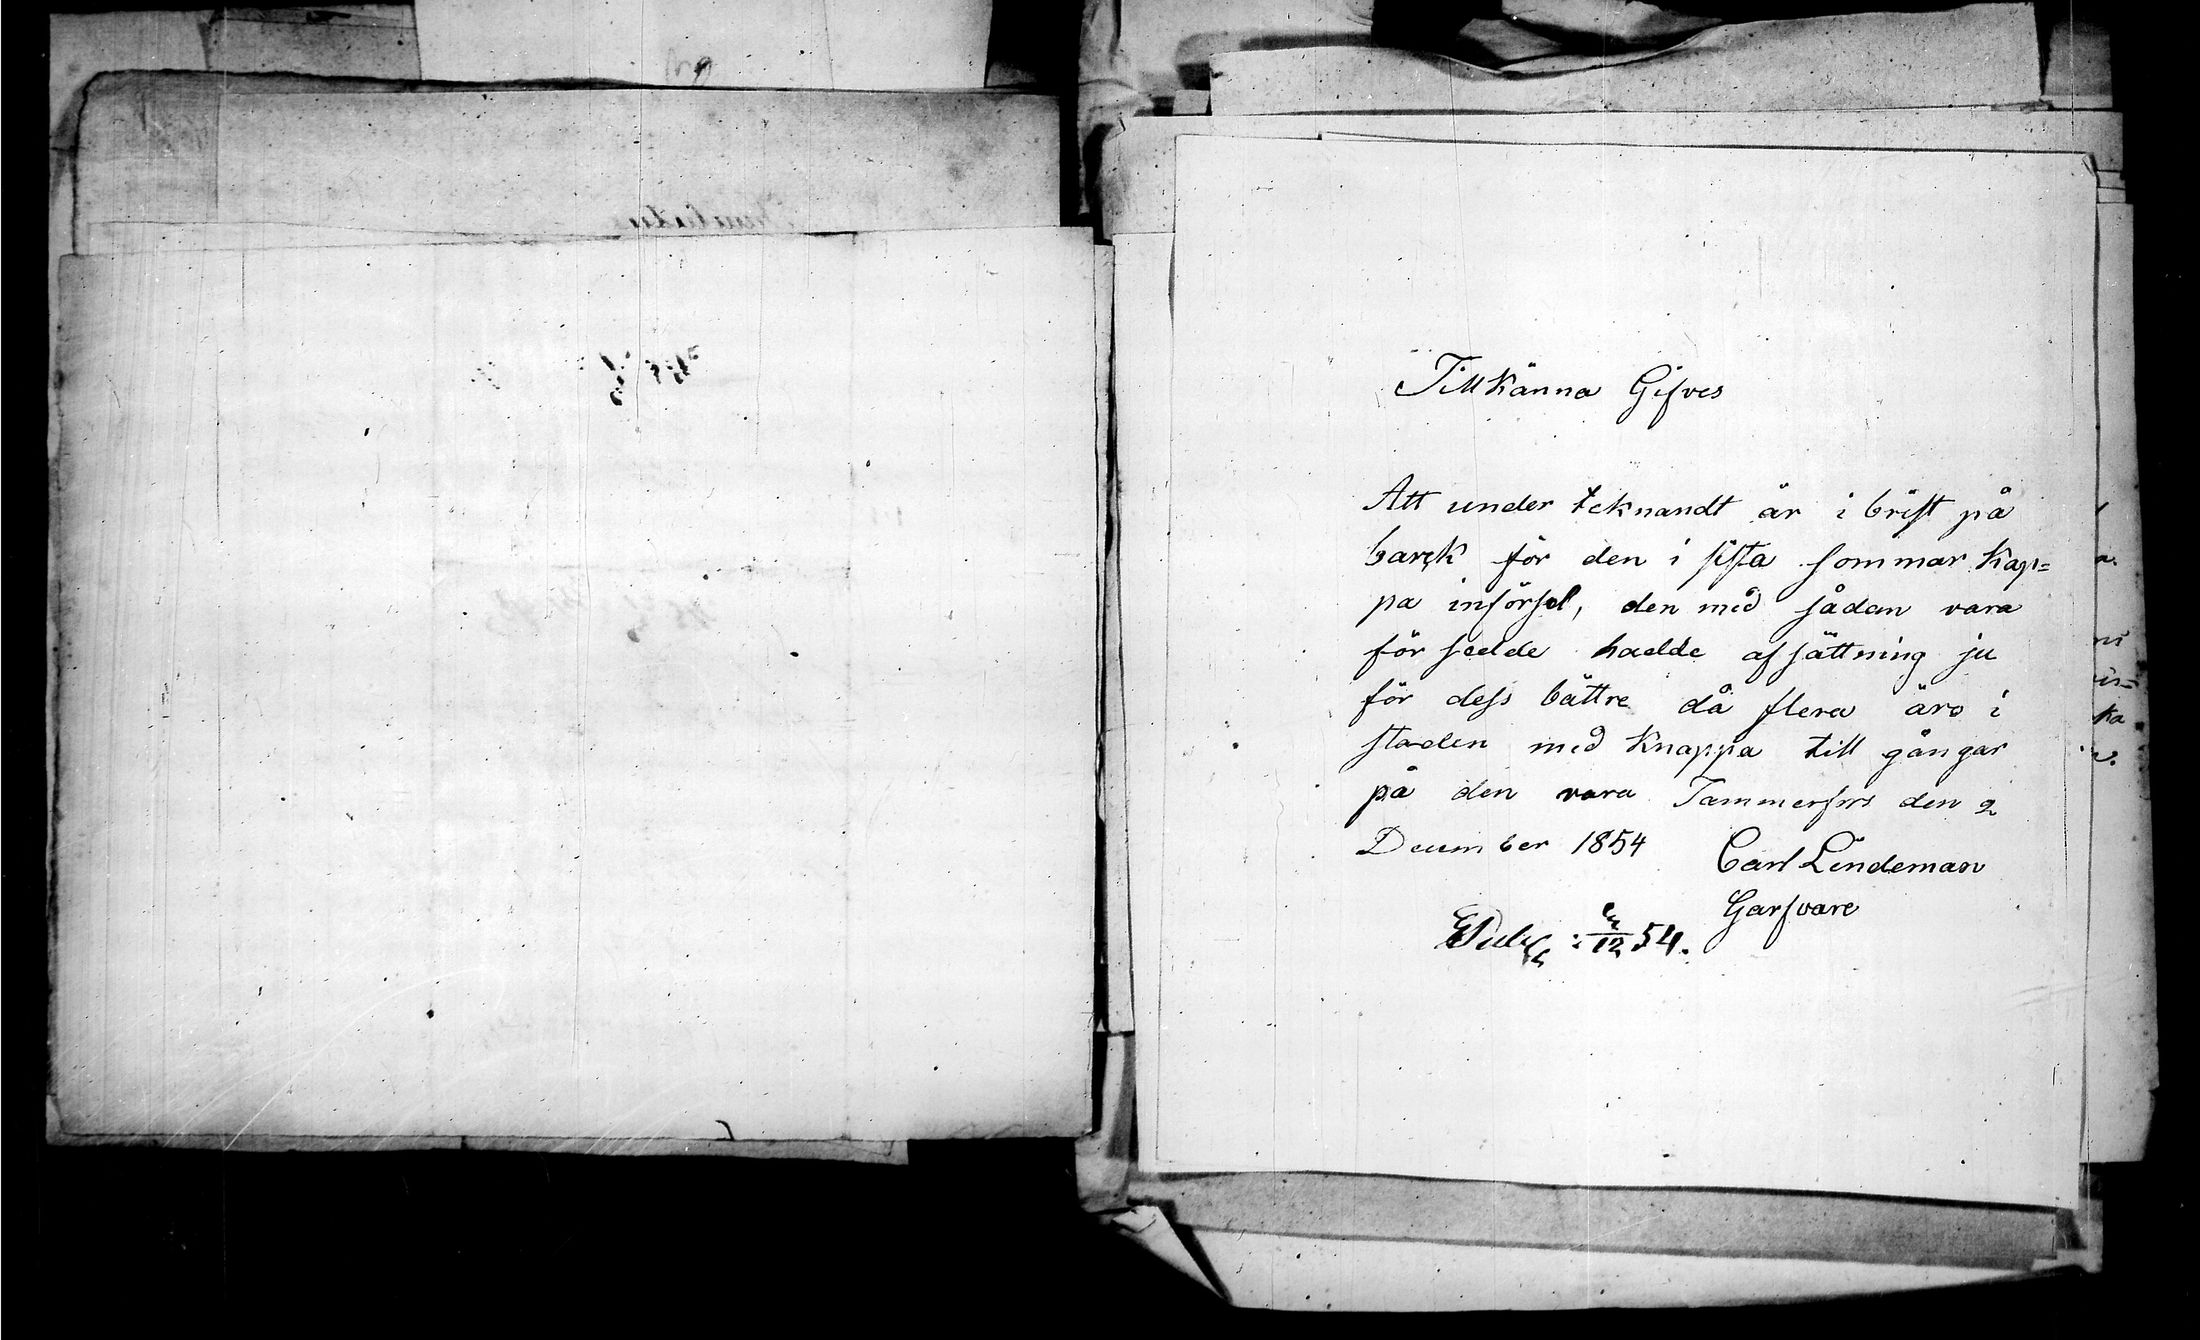 Till känna Gifves
Att under tcknandt är i brist på
barck för den i sista sommar Kap=
pa införsel, den med sådan vara
för sedde hadde afsättning ju
för dess bättre då flera äro i
staden med Knappa till gångar
på den vara Tammerfors den 2
December 1854
Carl Lindeman
Garfvare
12 54.